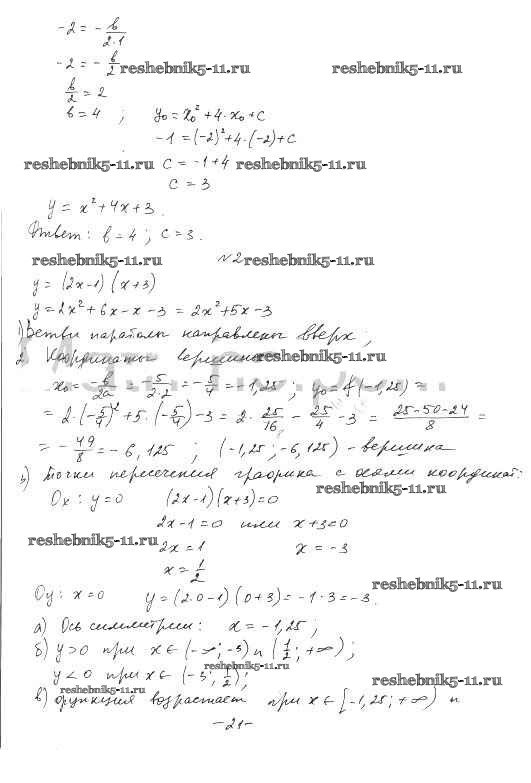 -2 = - b/(2·1)
-2 = - b/2 reshebnik5-11.ru reshebnik5-11.ru
b/2 = 2
b = 4 ; y₀ = x₀² + 4·x₀ + c
-1 = (-2)² + 4·(-2) + c
reshebnik5-11.ru c = -1+4 reshebnik5-11.ru
c = 3
y = x² + 4x + 3.
Ответ: b = 4 ; c = 3.
reshebnik5-11.ru №2 reshebnik5-11.ru
y = (2x-1)(x+3)
y = 2x² + 6x - x - 3 = 2x² + 5x - 3
1) Ветви параболы направлены вверх ;
2. Координаты вершины reshebnik5-11.ru
x₀ = - b/2a = - 5/(2·2) = - 5/4 = -1,25 ; y₀ = f(-1,25) =
= 2·(-5/4)² + 5·(-5/4) - 3 = 2· 25/16 - 25/4 - 3 = (25-50-24)/8 =
= - 49/8 = -6,125 ; (-1,25 ; -6,125) - вершина
3) Точки пересечения графика с осями координат:
reshebnik5-11.ru
Ox : y = 0 (2x-1)(x+3) = 0
2x-1 = 0 или x+3 = 0
reshebnik5-11.ru 2x = 1 x = -3
x = 1/2
reshebnik5-11.ru
Oy : x = 0 y = (2·0-1)(0+3) = -1·3 = -3.
а) Ось симметрии: x = -1,25 ;
б) y>0 при x ∈ (-∞; -3) и (1/2 ; +∞) ;
reshebnik5-11.ru
y<0 при x ∈ (-3 ; 1/2) ; reshebnik5-11.ru
reshebnik5-11.ru
в) функция возрастает при x ∈ [-1,25 ; +∞) и
-21-